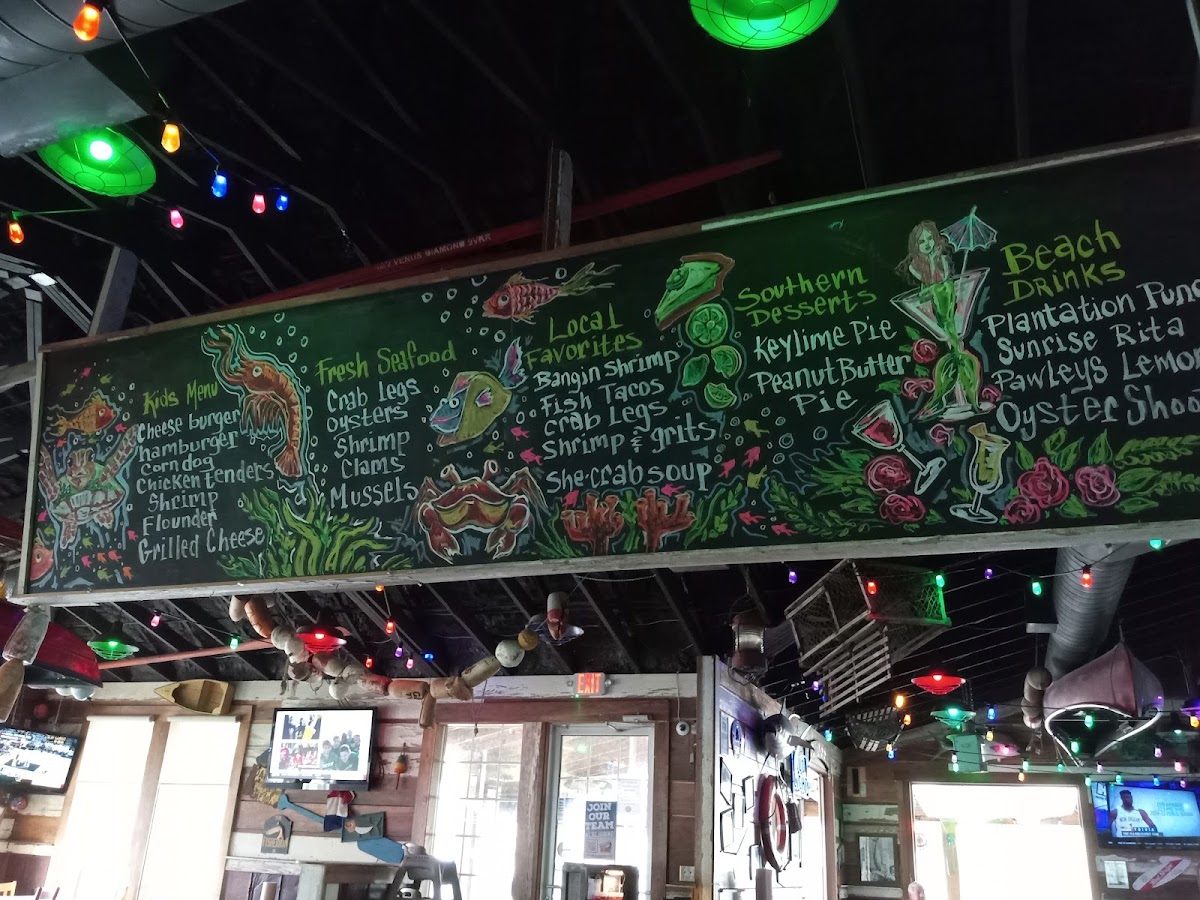 Kids Menu
Cheese burger
hamburger
Corn dog
Chicken tenders
Shrimp
Flounder
Grilled Cheese
Fresh Seafood
Crab Legs
Oysters
Shrimp
Clams
Mussels
Local
Favorites
Bangin Shrimp
Fish Tacos
Crab Legs
Shrimp & grits
She-crab soup
Southern
Desserts
Keylime Pie
Peanut Butter
Pie
Beach
Drinks
Plantation
Sunrise Rita
Pawleys
Oyster
EXIT
JOIN
OUR
TEAM
TRIVIA